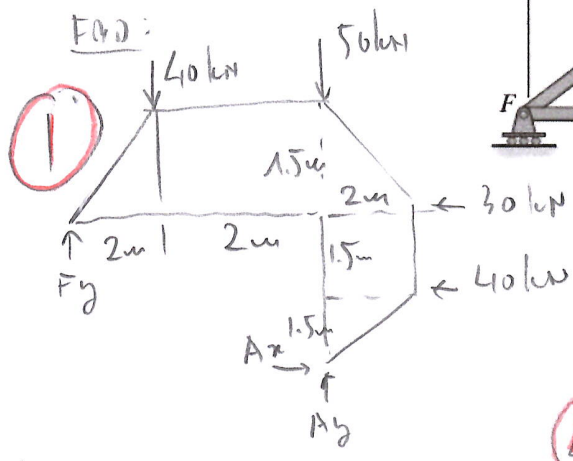 FBD:
40kN
50kN
F
1
1.5m
2m
← 30kN
2m
2m
Fy
1.5m
← 40kN
1.5m
Ax
Ay